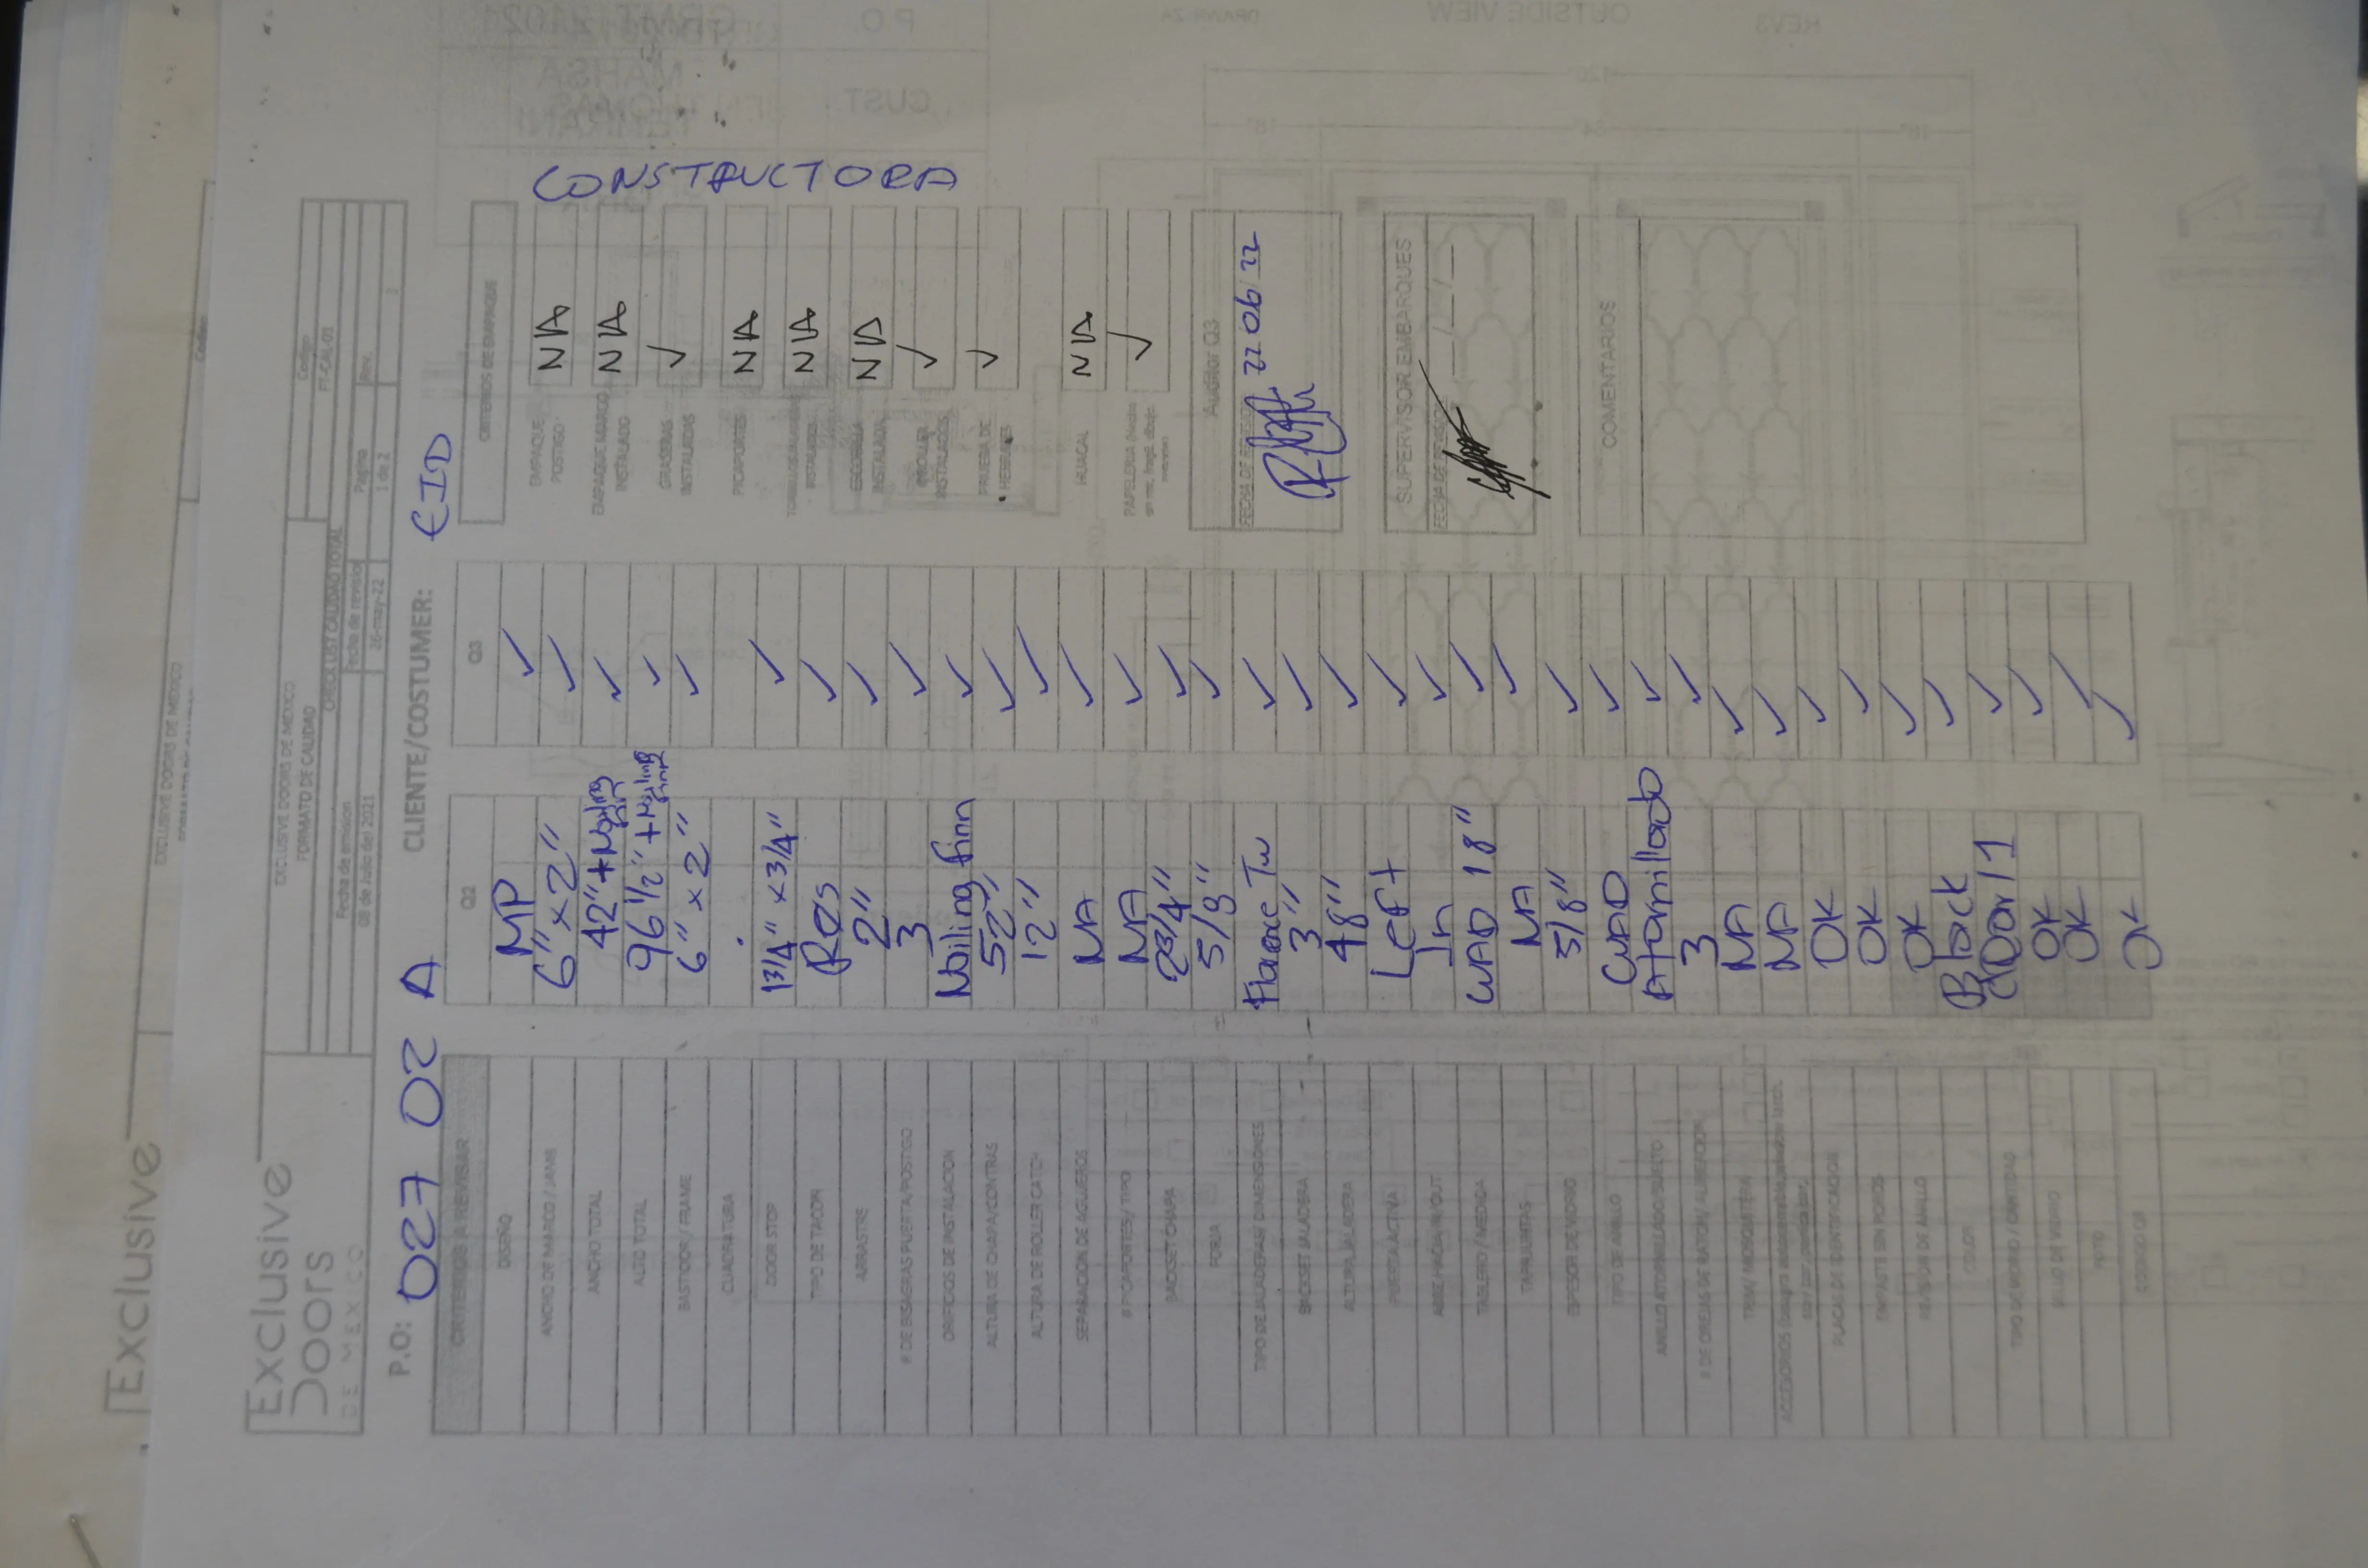 Exclusive
EXCLUSIVE DOORS DE MEXICO
Codigo
Exclusive
Doors
DE MEXICO
EXCLUSIVE DOORS DE MEXICO
FORMATO DE CALIDAD
CHECK LIST CALIDAD TOTAL
Codigo
FT-CAL-01
Fecha de emision
08 de Julio del 2021
Fecha de revision
26-may-22
Pagina
1 de 2
Rev.
3
P.O: 027 02 A CLIENTE/COSTUMER: EID
CONSTRUCTORA
CRITERIOS A REVISAR Q2 Q3
DISEÑO MP ✓
ANCHO DE MARCO / JAMB 6" x 2" ✓
ANCHO TOTAL 42" + Nailing finn ✓
ALTO TOTAL 96 1/2" + Nailing finn ✓
BASTIDOR / FRAME 6" x 2" ✓
CUADRATURA
DOOR STOP 1 3/4" x 3/4" ✓
TIPO DE TACON ✓
ARRASTRE 2" ✓
# DE BISAGRAS PUERTA/POSTIGO 3 ✓
ORIFICIOS DE INSTALACION Nailing finn ✓
ALTURA DE CHAPA/CONTRAS 52" ✓
ALTURA DE ROLLER CATCH 12" ✓
SEPARACION DE AGUJEROS NA ✓
# PICAPORTES/ TIPO NA ✓
BACKSET CHAPA 2 3/4" ✓
FORJA 5/8" ✓
TIPO DE JALADERAS/ DIMENSIONES ✓
BACKSET JALADERA 3" ✓
ALTURA JALADERA 48" ✓
PUERTA ACTIVA Left ✓
ABRE HACIA IN/OUT In ✓
TABLERO / MEDIDA CUAD 18" ✓
TAPAJUNTAS NA ✓
ESPESOR DE VIDRIO 5/8" ✓
TIPO DE ANILLO CUAD ✓
ANILLO ATORNILLADO/SUJETO Atornillado ✓
# DE OREJAS DE RATON/ 3 ✓
NA ✓
ACCESORIOS NA ✓
PLACAS DE IDENTIFICACION OK ✓
EMPASTE SIN POROS OK ✓
REVISION DE ANILLO OK ✓
COLOR Black ✓
TIPO DE VIDRIO / CANTIDAD Clear / 1 ✓
SELLO DE VIDRIO OK ✓
FOTO OK ✓
CODIGO QR OK ✓
CRITERIOS DE EMPAQUE
EMPAQUE POSTIGO NA
EMPAQUE MARCO INSTALADO NA
GRASERAS INSTALADAS ✓
PICAPORTES NA
INSTALADOS NA
ESCOBILLA INSTALADA NA
ROLLER INSTALADOS ✓
PRUEBA DE HERRAJES ✓
HUACAL NA
PAPELERIA ✓
Auditor Q3
FECHA DE REVISION 22 06 22
SUPERVISOR EMBARQUES
FECHA DE REVISION
COMENTARIOS
P.O.
CUST.
MAHSA
TEHRANI
OUTSIDE VIEW
REV3